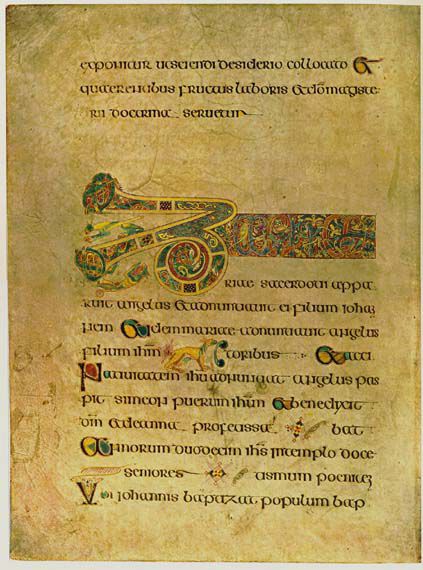 exponitur utsciendi desiderio collocato &
quaerentibus fructus laboris & dō magiste
rii doctrina seruetur
Zacha
riae sacerdoti appa
ruit angelus & adnuntiauit ei filium iohan
nem & idem mariae adnuntiauit angelus
filium ihm toribus & acci
Natiuitatem ihu adnuntiat angelus pas
pit simeon puerum ihm & benedixit
dm & de anna professa bat
Annorum duodecim ihs intemplo doce
seniores tismum poeniten
Ubi iohannis baptizat populum bap